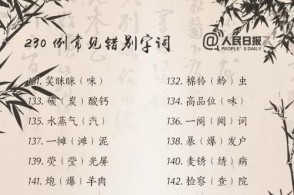 230 例常见错别字词
@人民日报
PEOPLE'S DAILY
131. 笑眯眯（咪） 132. 棉铃（蛉）虫
133. 碳（炭）酸钙 134. 高品位（味）
135. 水蒸气（汽） 136. 一阕（阙）词
137. 一摊（滩）泥 138. 暴（爆）发户
139. 荧（莹）光屏 140. 麦锈（绣）病
141. 炮（爆）羊肉 142. 检察（查）院